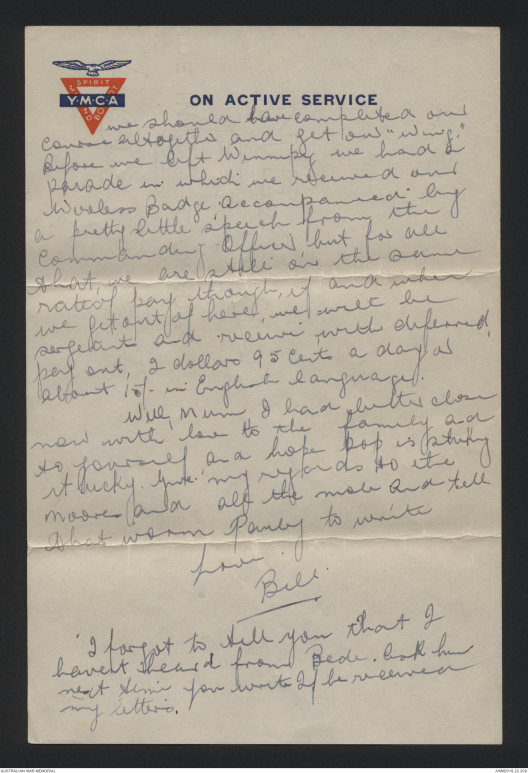 SPIRIT
MIND BODY
Y·M·C·A
ON ACTIVE SERVICE
we should have completed our
course altogether and get our "wing."
Before we left Winnipeg we had a
parade in which we received our
Wireless Badge accompanied by
a pretty little speech from the
Commanding Officer but for all
that, we are still on the same
rate of pay though, if and when
we get out of here, we will be
sergeants and receive, with deferred
pay out, 2 dollars 95 cents a day or
about 15/- in English language.
Well, Mum I had better close
now with love to the family and
to yourself and hope Pop is striking
it lucky. Give my regards to the
Moores and all the mob and tell
that worm to write
Love.
Bill.
I forgot to tell you that I
haven't heard from Bede. Ask him
next time you write if he received
my letters.
AUSTRALIAN WAR MEMORIAL